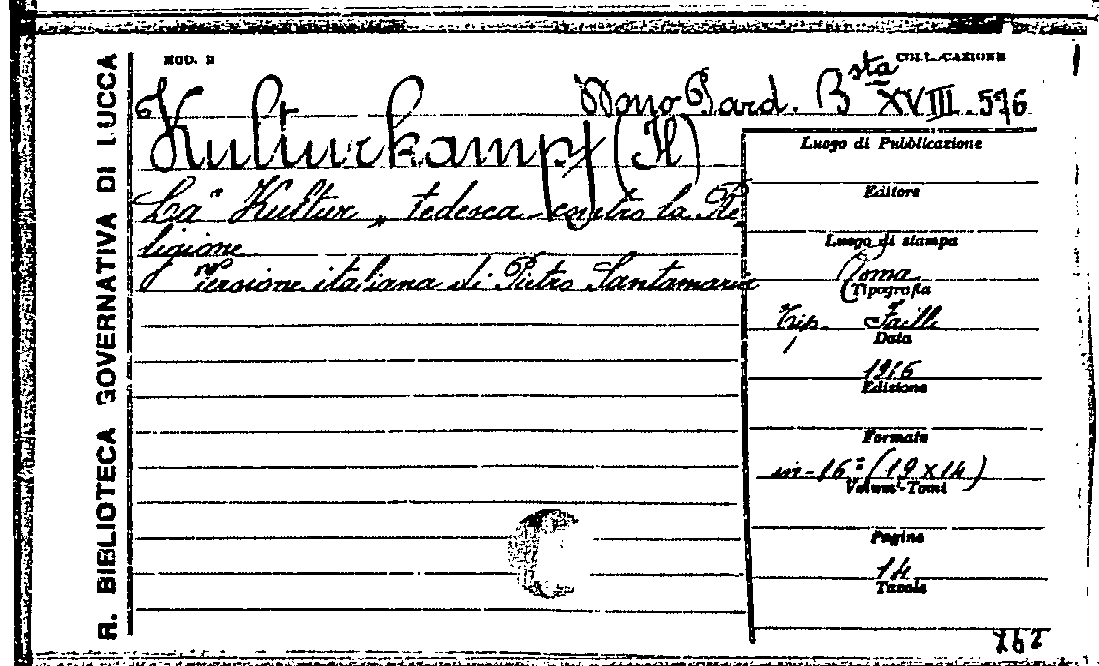 R. BIBLIOTECA GOVERNATIVA DI LUCCA
MOD. B
COLLOCAZIONE
Dono Pard. Bsta XVIII. 576
Kulturkampf (Il)
La "Kultur" tedesca contro la Re
ligione
Versione italiana di Pietro Santamaria
Luogo di Pubblicazione
Editore
Luogo di stampa
Roma
Tipografia
Tip. Failli
Data
1916
Edizione
Formato
in-16º (19 x 14)
Volumi-Tomi
Pagine
14
Tavole
262